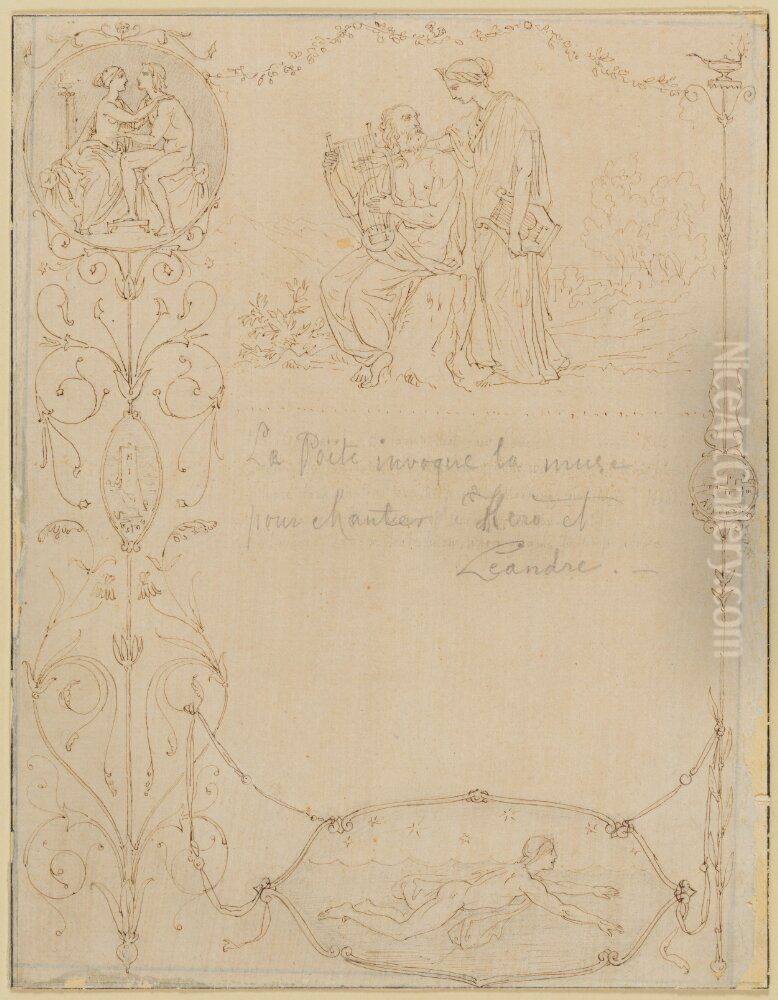 La Poete invoque la muse
pour chanter Hero et
Leandre. —
NiceArtGallery.com